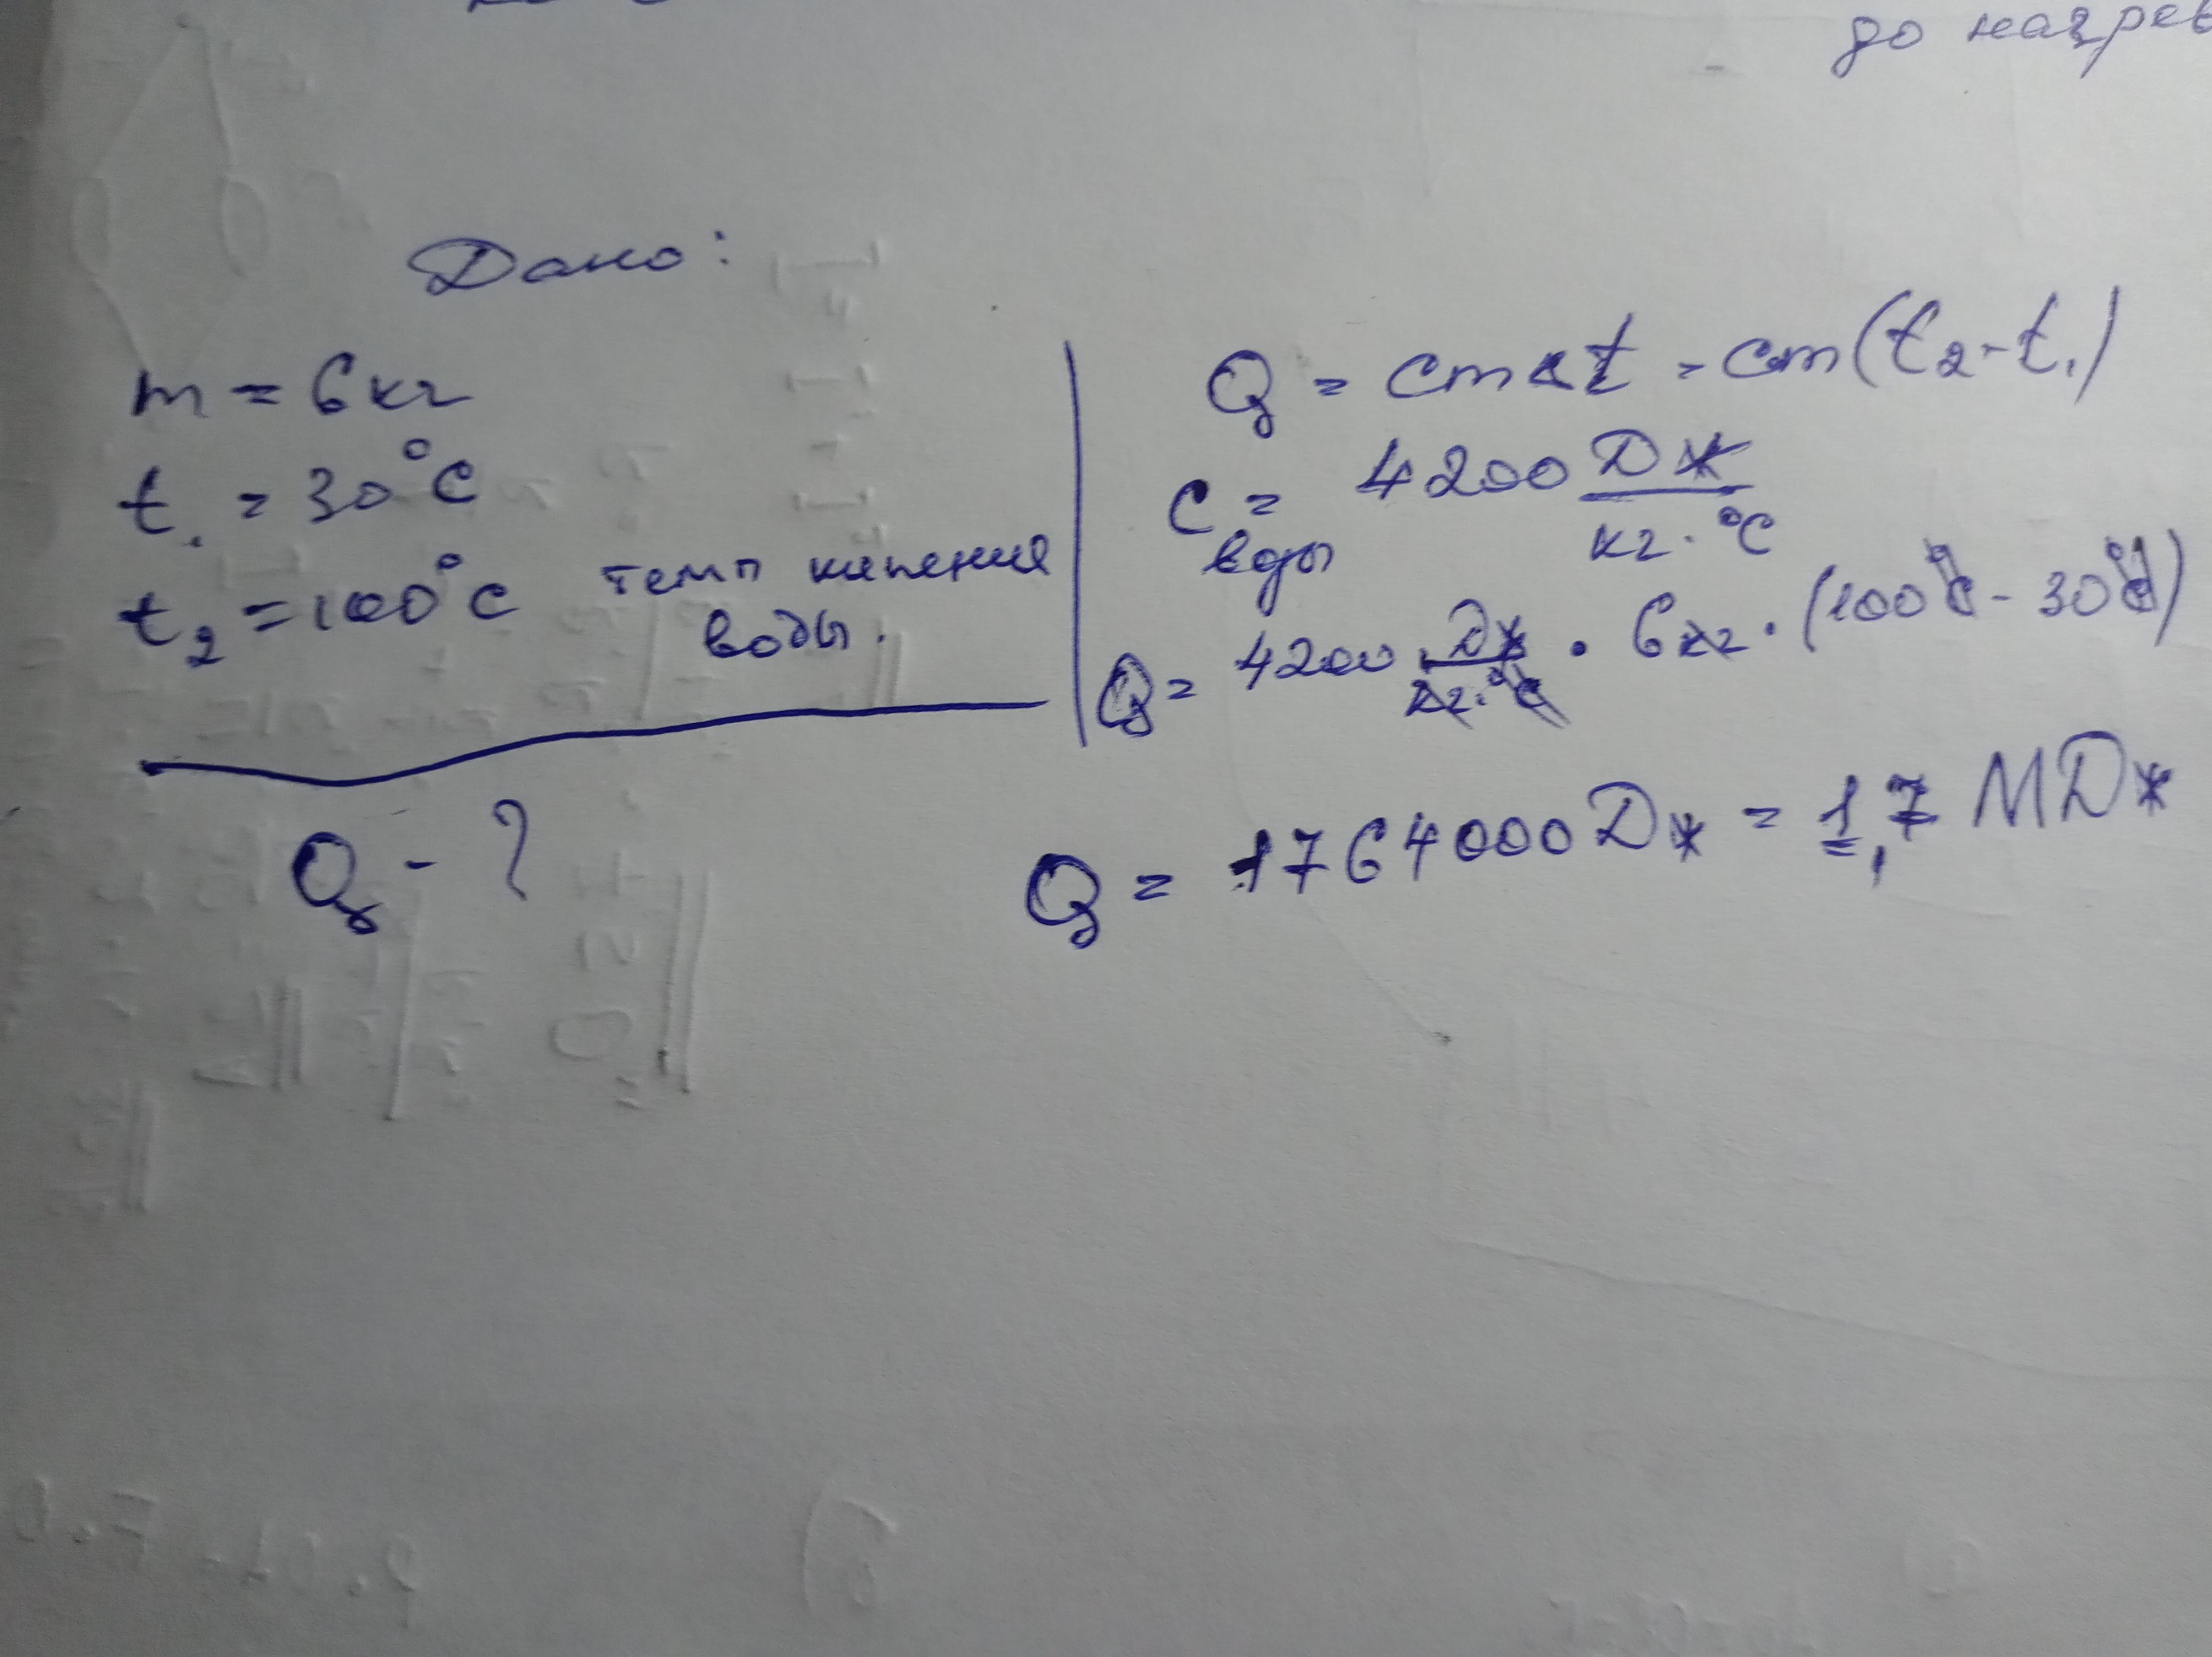 до нагрев
Дано:
m = 6кг
t₁ = 30°C
t₂ = 100°C темп кипения
воды.
Q - ?
Q = cmΔt = cm(t₂-t₁)
C воды = 4200 Дж/кг·°C
Q = 4200 Дж/кг·°C · 6кг · (100°C - 30°C)
Q = 1764000Дж = 1,7 МДж